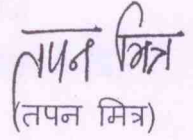 तपन मित्र
(तपन मित्र)